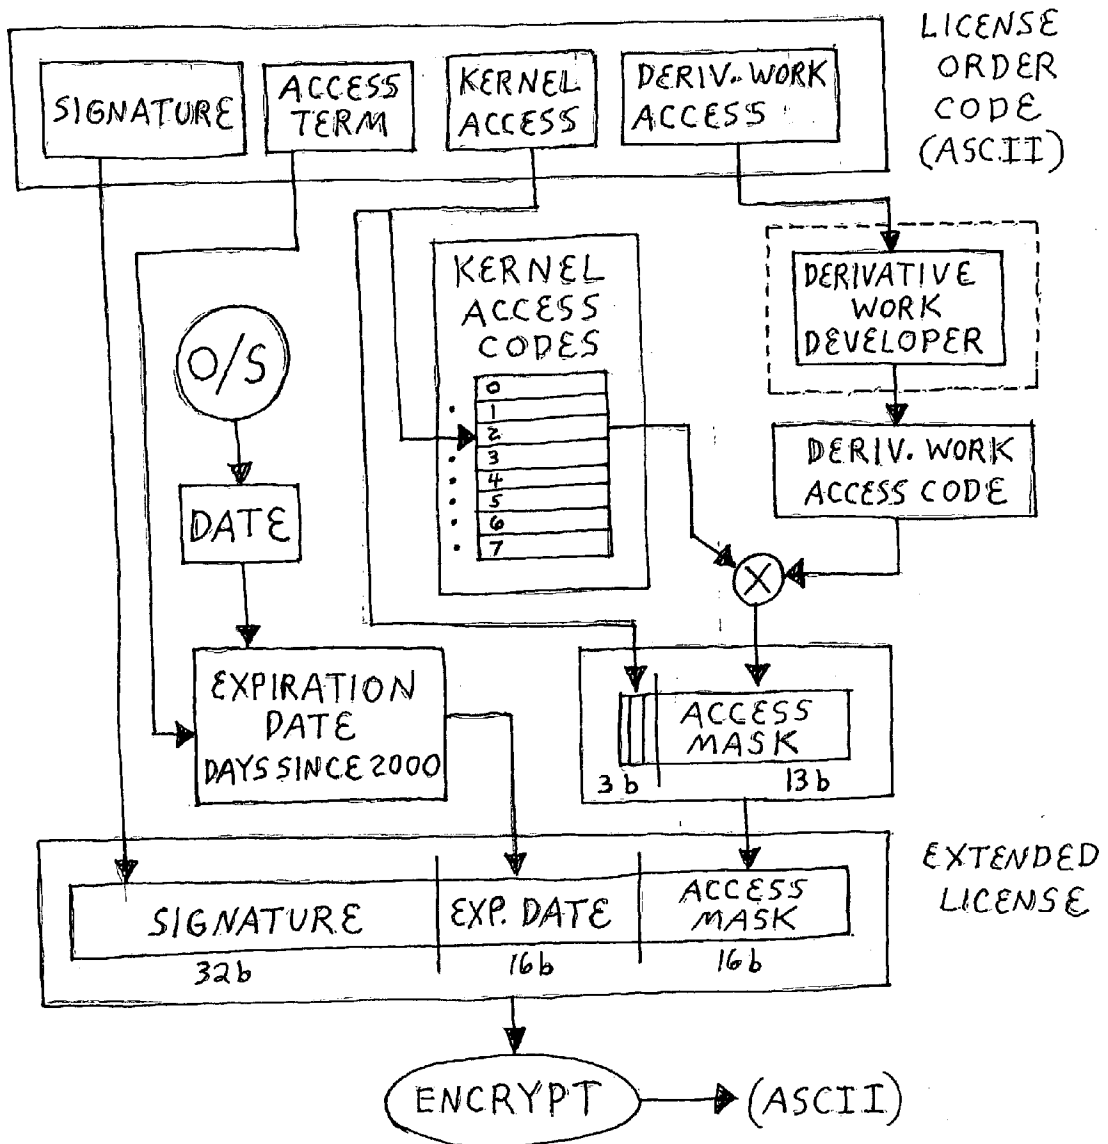 LICENSE
ORDER
CODE
(ASCII)
SIGNATURE
ACCESS
TERM
KERNEL
ACCESS
DERIV. WORK
ACCESS
KERNEL
ACCESS
CODES
0
1
2
3
4
5
6
7
DERIVATIVE
WORK
DEVELOPER
O/S
DATE
DERIV. WORK
ACCESS CODE
X
EXPIRATION
DATE
DAYS SINCE 2000
ACCESS
MASK
3b
13b
EXTENDED
LICENSE
SIGNATURE
EXP. DATE
ACCESS
MASK
32b
16b
16b
ENCRYPT
(ASCII)